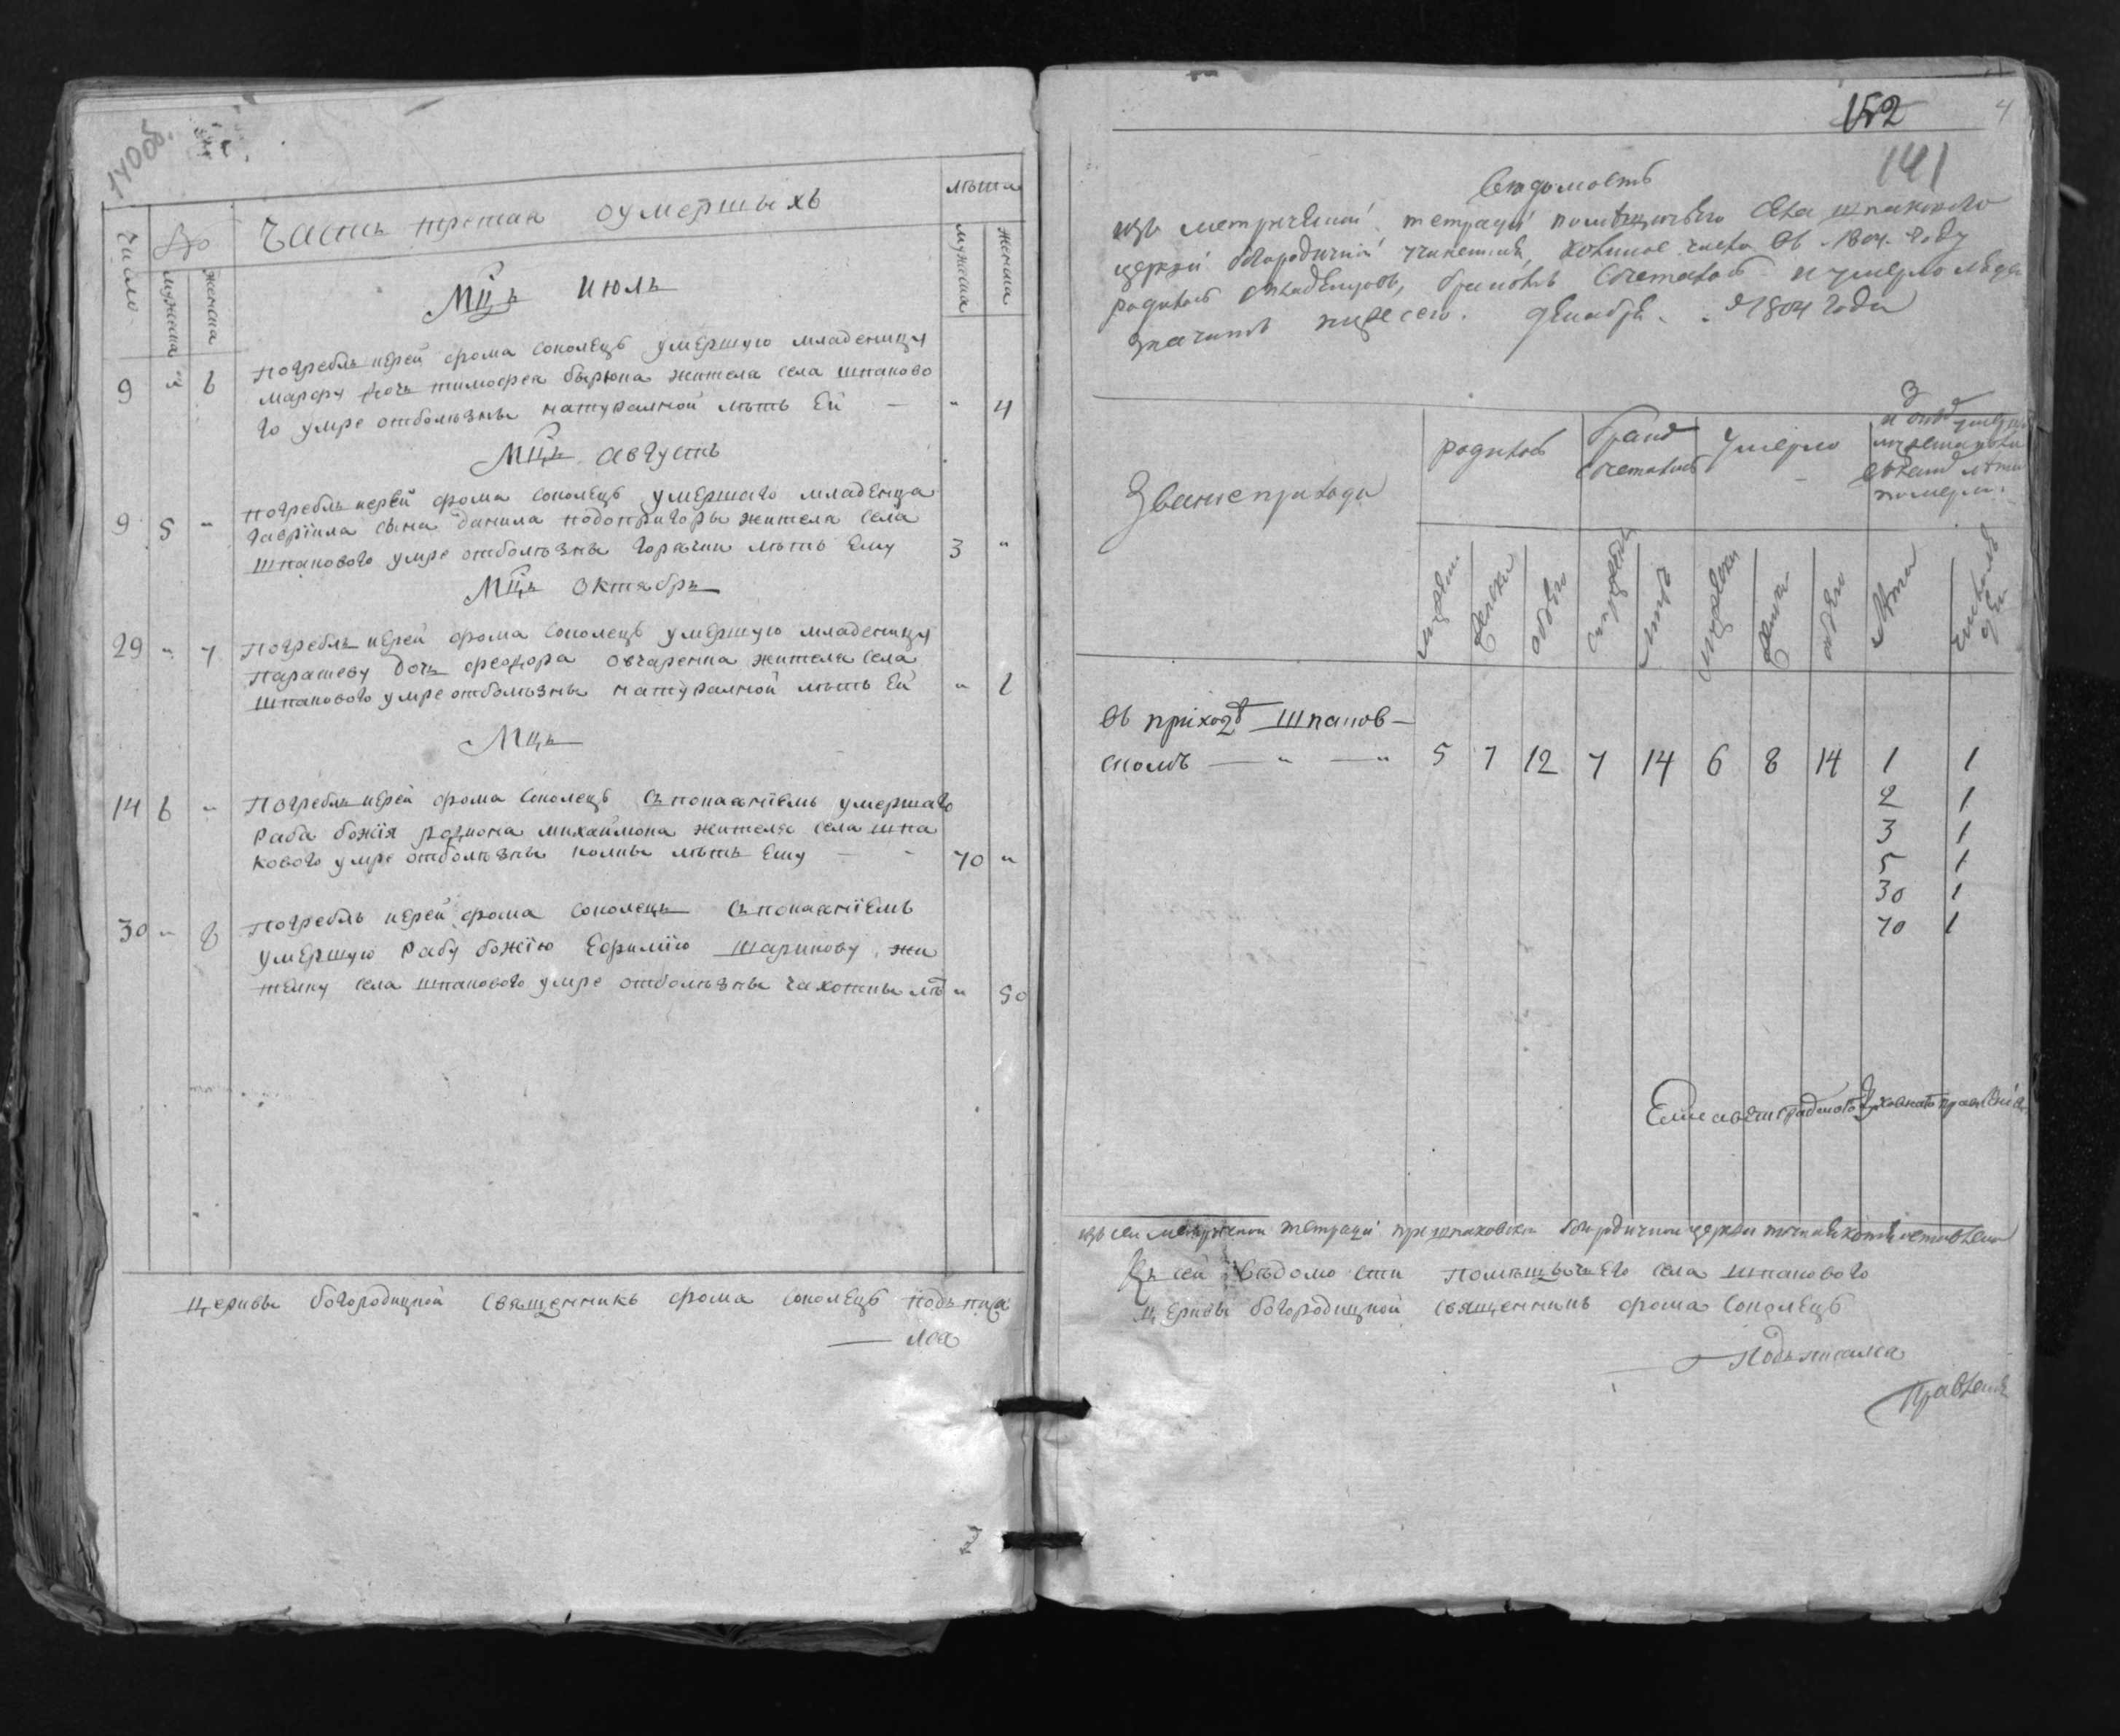 140об.
Часть третая оумершихъ
лѣта
Число
№
мужеска
женска
мужеска
женска
Мцъ Июль
9 " 6 Погребль иерей фома соколецъ умершую младеницу
марфу дочь тимофея бырюка жителя села шпаково
го умре отболѣзны натуралной лѣтъ Ей — " 4
Мцъ августъ
9 5 " погребль иерей фома соколецъ умершаго младенца
гаврїила сына данила подопригоры жителя села
шпакового умре отболѣзны горячки лѣтъ Ему 3 "
Мцъ октябрь
29 " 7 Погребль иерей фома соколецъ умершую младеницу
Параскеву дочь феодора овчаренка жителя села
шпакового умре отболѣзны натуралной лѣтъ Ей "
Мцъ
14 6 " Погребль иерей фома соколецъ съ покаянїемъ умершаго
Раба божїя родиона михайлюка жителя села шпа
кового умре отболѣзны колпы лѣтъ Ему — " 70 "
30 " 8 Погребль иерей фома соколецъ съ покаянїемъ
умершую Рабу божїю Ефимїю шарикову жи
телку села шпакового умре отболѣзны чахотны лѣ " 50
церквы богородицкой священникъ фома соколецъ подъписа
— лся
152
4
141
Вѣдомость
изъ метрической тетради помѣщичьего села шпакового
церкви богородичной, коликое число въ 1804 году
родилось младенцовъ, браковъ сочеталось и умерло людей
значитъ ниже сего. декабря 1804 года
Звание прихода
родилось
браковъ сочеталось
умерло
мужеска
женска
обоего
мужеска
женска
обоего
лѣта
Въ прїходѣ Шпаков—
скомъ — " — " 5 7 12 7 14 6 8 14 1 1
2 1
3 1
5 1
30 1
70 1
Елисаветградского Духовнаго правленїя
изъ сей метрической тетради при шпаковской богородичной церкви
Къ сей Вѣдомости помѣщычЕго села шпакового
цЕрквы богородицкой священникъ фома соколецъ
— Подъписался
Правленїе